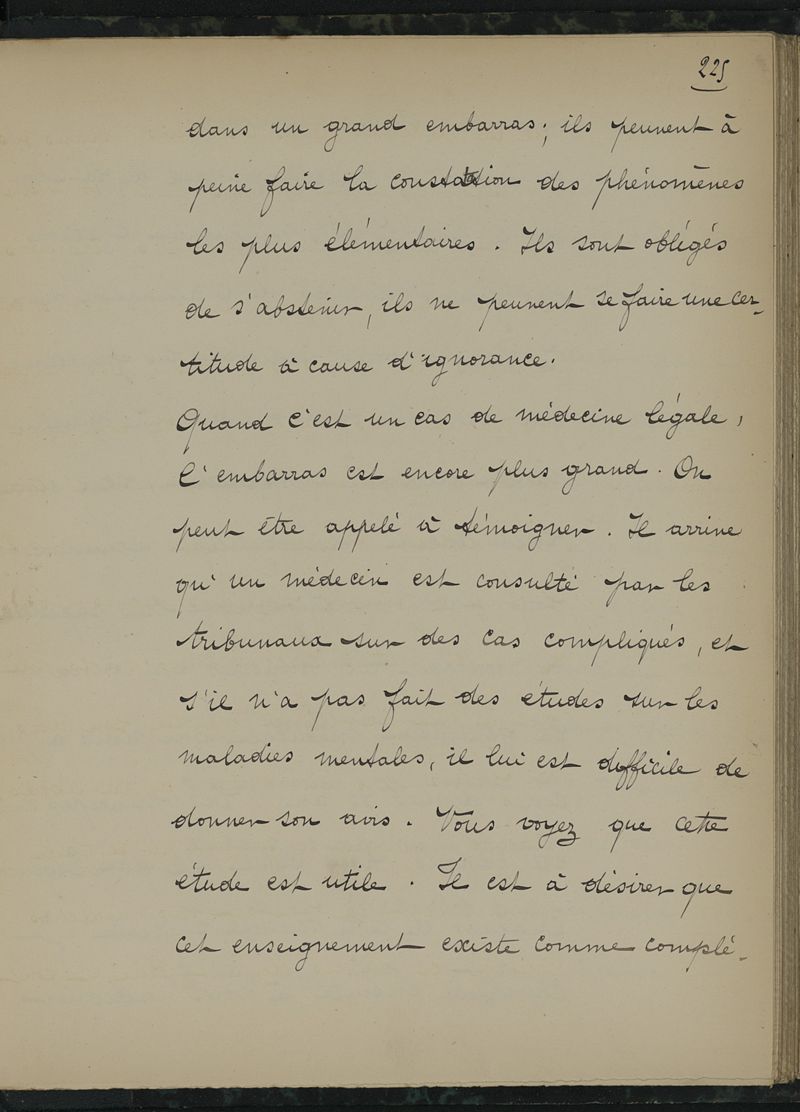 225
dans un grand embarras ; ils peuvent à
peine faire la constatation des phénomènes
les plus élémentaires . Ils sont obligés
de s'abstenir, ils ne peuvent se faire une cer-
titude à cause d'ignorance.
Quand c'est un cas de médecine légale,
l'embarras est encore plus grand. On
peut être appelé à témoigner. Il arrive
qu'un médecin est consulté par les
tribunaux sur des cas compliqués, et
s'il n'a pas fait des études sur les
maladies mentales, il lui est difficile de
donner son avis. Vous voyez que cette
étude est utile. Il est à désirer que
cet enseignement existe comme complé-